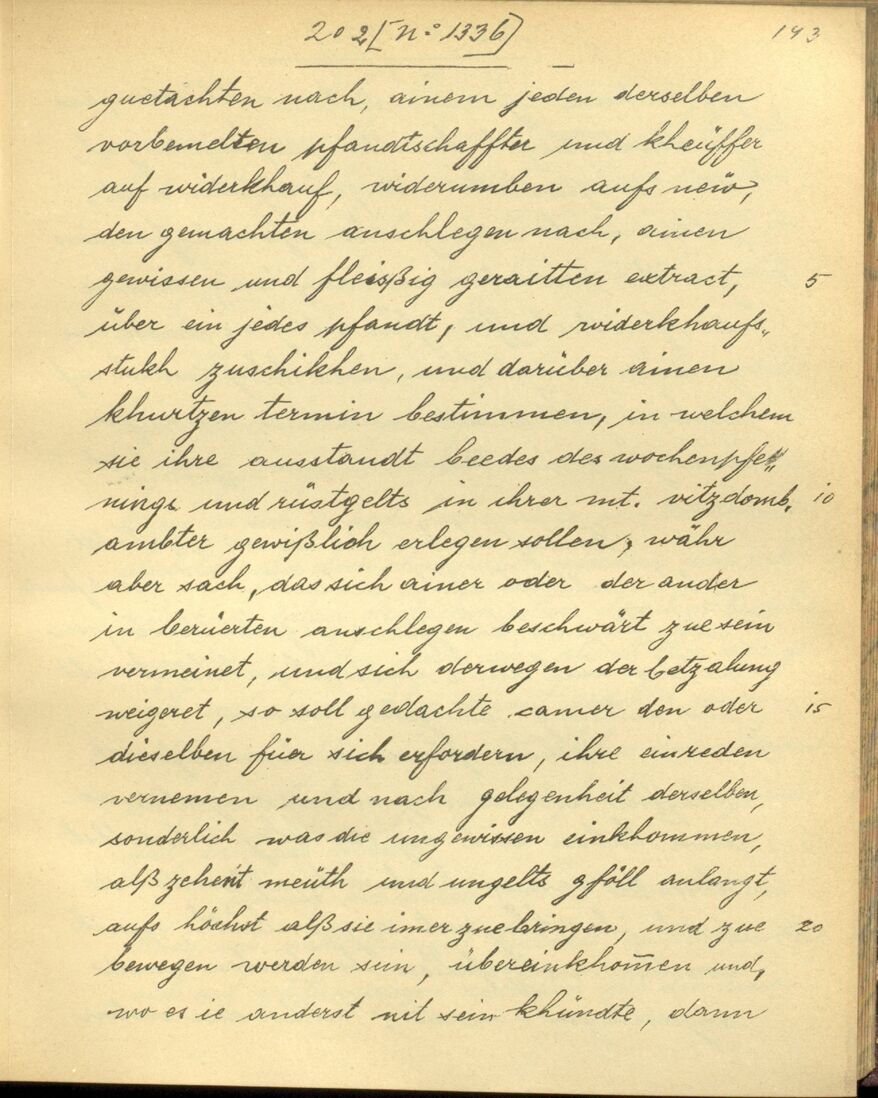 202 [N:o 1336]
193
guetachten nach, ainem jeden derselben
vorbemelten pfandtschaffter und kheüffer
auf widerkhauf, widerumben aufs neü,
den gemachten anschlegen nach, ainen
gewissen und fleisßig geraitten extract, 5
über ein jedes pfandt, und widerkhaufs„
stukh zuschikhen, und darüber ainen
khurtzen termin bestimmen, in welchem
sie ihre ausstandt beedes des wochenpfe„
nings und rüstgelts in ihrer mt. vitzdomb„ 10
ambter gewißlich erlegen sollen; währ
aber sach, das sich ainer oder der ander
in berüerten anschlegen beschwärt zue sein
vermeinet, und sich derwegen der betzalung
weigeret, so soll gedachte camer den oder 15
dieselben füer sich erfordern, ihre einreden
vernemen und nach gelegenheit derselben,
sonderlich was die ungewissen einkhommen,
alß zehent meüth und ungelts gföll anlangt,
aufs höchst alß sie imer zue bringen, und zue 20
bewegen werden sein, übereinkhom̄en und,
wo es ie anderst nit sein khündte, dann